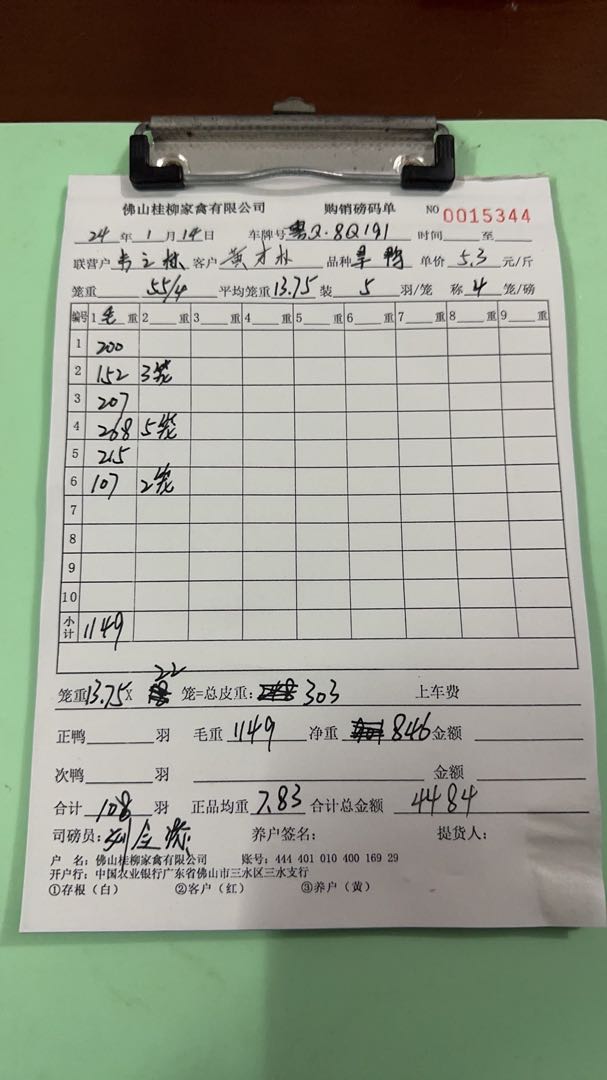 佛山桂柳家禽有限公司 购销磅码单 NO 0015344
24 年 1 月 14 日 车牌号 粤Q·8Q191 时间 至
联营户 客户 黄 品种 旱鸭 单价 5.3 元/斤
笼重 55/4 平均笼重 13.75 装 5 羽/笼 称 4 笼/磅
编号 1 毛 重 2 重 3 重 4 重 5 重 6 重 7 重 8 重 9 重
1 200
2 152 3笼
3 207
4 268 5笼
5 215
6 107 2笼
7
8
9
10
小计 1149
笼重 13.75 X 22 笼=总皮重: 303 上车费
正鸭 羽 毛重 1149 净重 846 金额
次鸭 羽 金额
合计 108 羽 正品均重 7.83 合计总金额 4484
司磅员: 养户签名: 提货人:
户 名: 佛山桂柳家禽有限公司 账号: 444 401 010 400 169 29
开户行: 中国农业银行广东省佛山市三水区三水支行
①存根（白） ②客户（红） ③养户（黄）